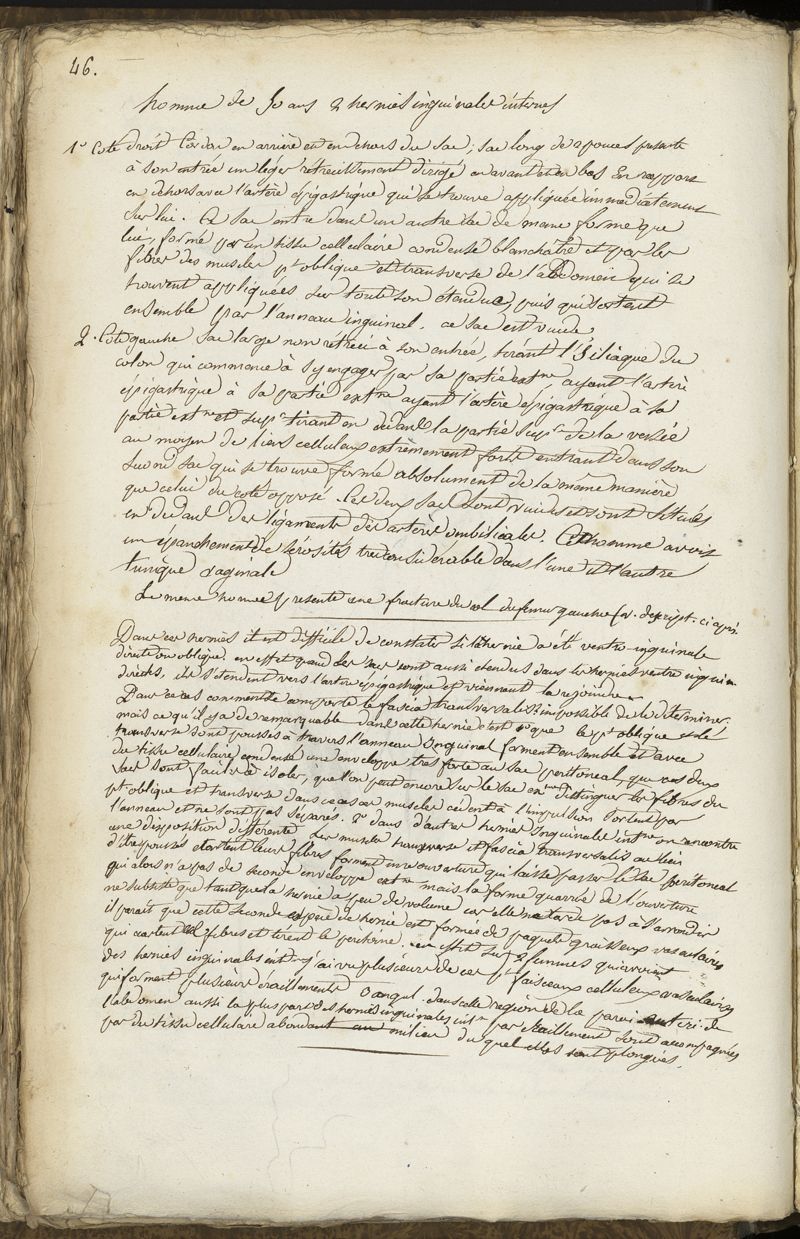 46.
homme de 50 ans 2 hernies inguinales internes
1° Coté droit Cordon en arrière et en dehors du sac; sac long de 2 pouces presente
à son entrée un léger rétrécissement dirigé en avant et en bas En rapport
en dehors avec l'artère épigastrique qui se trouve appliquée immédiatement
sur lui. Ce sac entre dans un autre sac de meme forme que
lui, formé par un tissu cellulaire condensé blanchatre et par les
fibres des muscles pt oblique et transverse de l'abdomen qui se
trouvent appliquées sur toute son etendue, puis qui sortent
ensemble par l'anneau inguinal. ce sac est vuide
2. Coté gauche sac large non rétréci à son entrée, tirant l'S iliaque du
colon qui commence à s'y engager par sa partie extne, ayant l'artère
épigastrique à sa partie extne ayant l'artère épigastrique à sa
partie extne et supr tirant en dedans la partie supr de la vessie
au moyen de liens celluleux extrêmement forts entrant dans son
second sac qui se trouve formé absolument de la même manière
que celui du coté opposé. Ces deux sacs sont vuides et sont situés
en dedans des ligaments des artères ombilicales. Cet homme avoit
un épanchement de sérosités très considerable dans l'une et l'autre
tunique vaginale
Le meme homme presente une fracture du col du femur gauche (v. descript. ci après.
Dans ces hernies il est difficile de constater si l'hernie a été ventro inguinale
directe ou oblique. en effet quand les sacs sont aussi etendus dans les hernies ventro inguin.
directes, ils s'etendent vers l'artere épigastrique et viennent la rejoindre
Dans ce cas comment se comporte le fascia transversalis? impossible de le déterminer
mais ce qu'il y a de remarquable dans cette hernie c'est 1° que le pt oblique et le
transverse sont poussés à travers l'anneau inguinal forment ensemble et avec
du tissu cellulaire condensé une enveloppe très forte au sac peritoneal, que ces deux
sacs sont faciles à isoler, que l'on peut encore sur le sac distinguer les fibres du
pt oblique et transverse dans ce cas ces muscles cedent à l'impulsion sortent par
l'anneau et ne sont pas séparés. 2° dans d'autres hernies inguinales intnes on rencontre
une disposition différente les muscles transverse et fascia transversalis au lieu
d'etre poussés écartent leurs fibres forment une ouverture qui laisse passer le sac peritoneal
qui alors n'a pas de seconde enveloppe extne mais la forme quarrée de l'ouverture
ne subsiste que tant que la hernie a peu de volume car elle ne tarde pas à s'arrondir
il parait que cette seconde espèce de hernie est formée de paquets graisseux vasculaires
qui ecartent les fibres et tirent le péritoine. en effet sur 2 femmes qui avoient
des hernies inguinales intnes j'ai vu plusieurs de ces pts faisceaux celluleux vasculaires
qui forment plusieurs éraillements dans cette region de la paroi anteri. de
l'abdomen aussi la plus part des hernies inguinales intn par éraillement sont accompagnées
par du tissu cellulaire abondant au milieu du quel elles sont plongées.